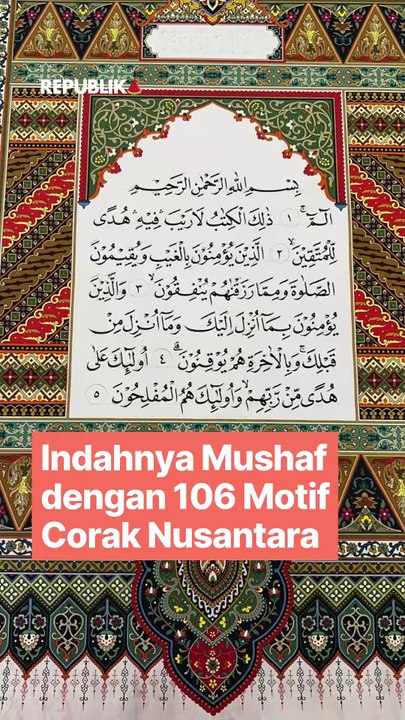 REPUBLIKA
بِسْمِ اللهِ الرَّحْمٰنِ الرَّحِيْمِ
الۤمّۤ ۚ ١ ذٰلِكَ الْكِتٰبُ لَا رَيْبَ ۛ فِيْهِ ۛ هُدًى
لِّلْمُتَّقِيْنَۙ ٢ الَّذِيْنَ يُؤْمِنُوْنَ بِالْغَيْبِ وَيُقِيْمُوْنَ
الصَّلٰوةَ وَمِمَّا رَزَقْنٰهُمْ يُنْفِقُوْنَۙ ٣ وَالَّذِيْنَ
يُؤْمِنُوْنَ بِمَآ اُنْزِلَ اِلَيْكَ وَمَآ اُنْزِلَ مِنْ
قَبْلِكَۚ وَبِالْاٰخِرَةِ هُمْ يُوْقِنُوْنَۗ ٤ اُولٰۤىِٕكَ عَلٰى
هُدًى مِّنْ رَّبِّهِمْۙ وَاُولٰۤىِٕكَ هُمُ الْمُفْلِحُوْنَ ٥
Indahnya Mushaf
dengan 106 Motif
Corak Nusantara